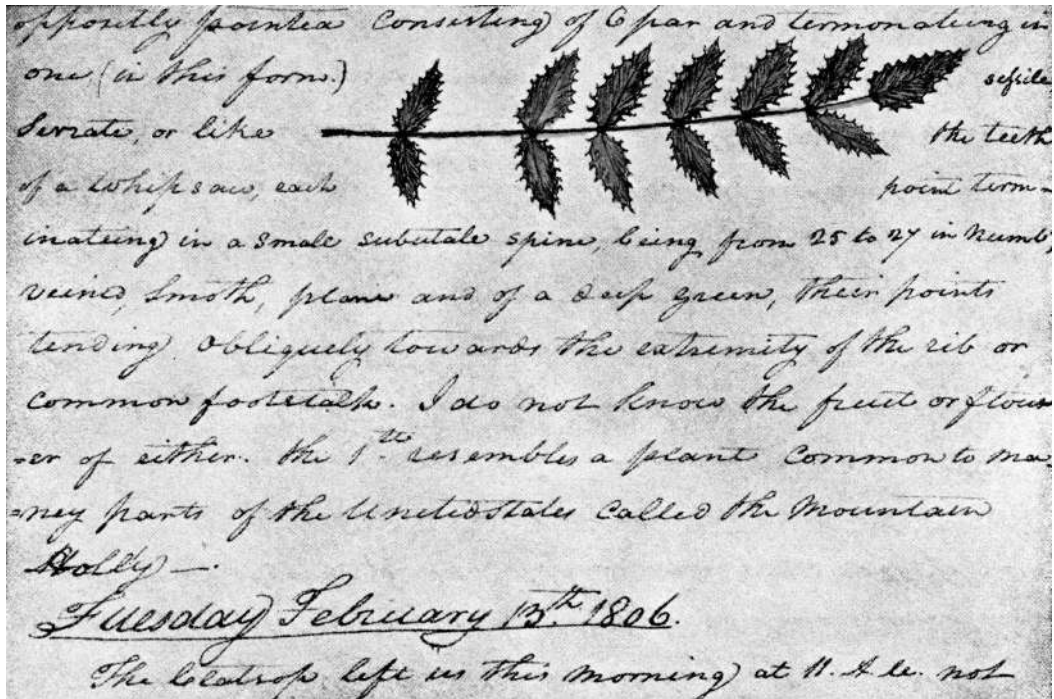 oppositly pointed Consisting of 6 par and termonateing in
one (in this form.) sessile
Serrate, or like the teeth
of a whipsaw, each point term=
inateing in a small subulate spine, being from 25 to 27 in Numbr,
veined, Smoth, plane and of a deep green, their points
tending obliquely towards the extremity of the rib or
common footstalk. I do not know the fruit or flow
=er of either. the 1st resembles a plant Common to ma
=ney parts of the United States Called the Mountain
Holly —.
Tuesday February 13th 1806.
The Clatsop left us this morning at 11. A. M. not